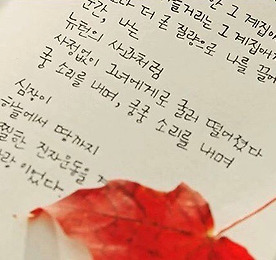 그 계집애
더 큰 질량으로 나를 끌어
순간, 나는
뉴턴의 사과처럼
사정없이 그녀에게로 굴러 떨어졌다
쿵 소리를 내며, 쿵쿵 소리를 내며
심장이
하늘에서 땅까지
찔한 진자운동을
랑이었다.